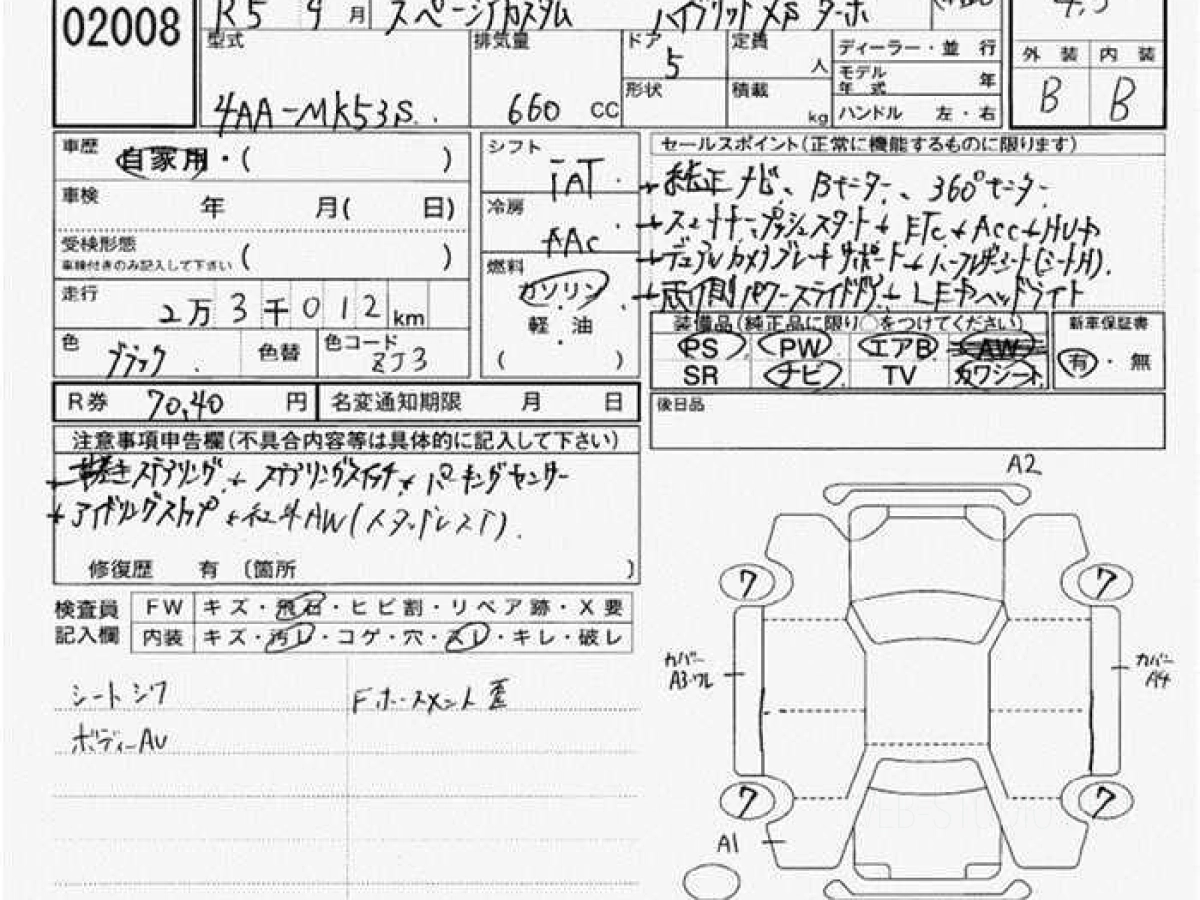 02008
R5 9月 スペーシアカスタム ハイブリッドXS ターボ
型式 4AA-MK53S
排気量 660 CC
ドア 5
形状
定員 人
積載 kg
ディーラー・並 行
モデル年式 年
ハンドル 左・右
4.5
外装 内装
B B
車歴 自家用・( )
車検 年 月( 日)
受検形態 ( )
車検付きのみ記入して下さい
走行 2万3千012km
色 ブラック 色替 色コード ZJ3
シフト IAT
冷房 AAC
燃料 ガソリン
軽 油
( )
セールスポイント(正常に機能するものに限ります)
純正ナビ、Bモニター、360°モニター
スマートキープッシュスタート ETC ACC HUD
デュアルカメラブレーキサポート ハーフレザーシート(シートH).
両側パワースライドドア LEDヘッドライト
装備品(純正品に限り○をつけてください)
PS PW エアB AW
SR ナビ TV カワシート
新車保証書
有・無
後日品
R券 70,40 円 名変通知期限 月 日
注意事項申告欄(不具合内容等は具体的に記入して下さい)
ステアリング ステアリングスイッチ パーキングセンサー
アイドリングストップ 社外AW(スタッドレスT).
修復歴 有 〔箇所 〕
検査員記入欄
FW キズ・飛石・ヒビ割・リペア跡・X要
内装 キズ・汚レ・コゲ・穴・スレ・キレ・破レ
シートシワ
ボディーAU
Fホースメント歪
A2
7 7
カバー A3・ワレ
カバー A4
7 7
A1